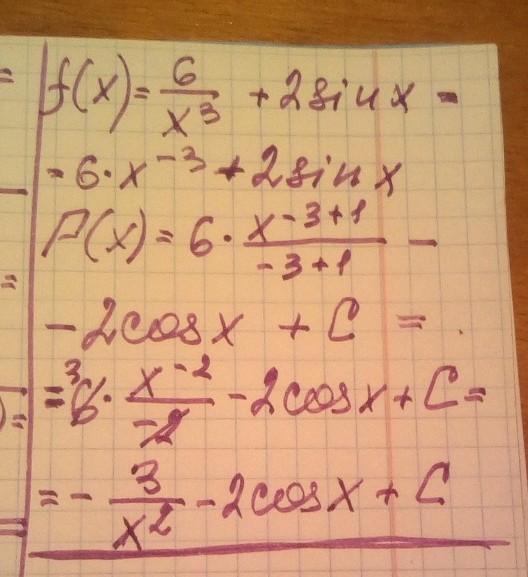 f(x) = 6/x³ + 2sinx =
= 6·x⁻³ + 2sinx
F(x) = 6· x⁻³⁺¹/-3+1 -
- 2cosx + C =
= ³6· x⁻²/-2 - 2cosx + C =
= - 3/x² - 2cosx + C